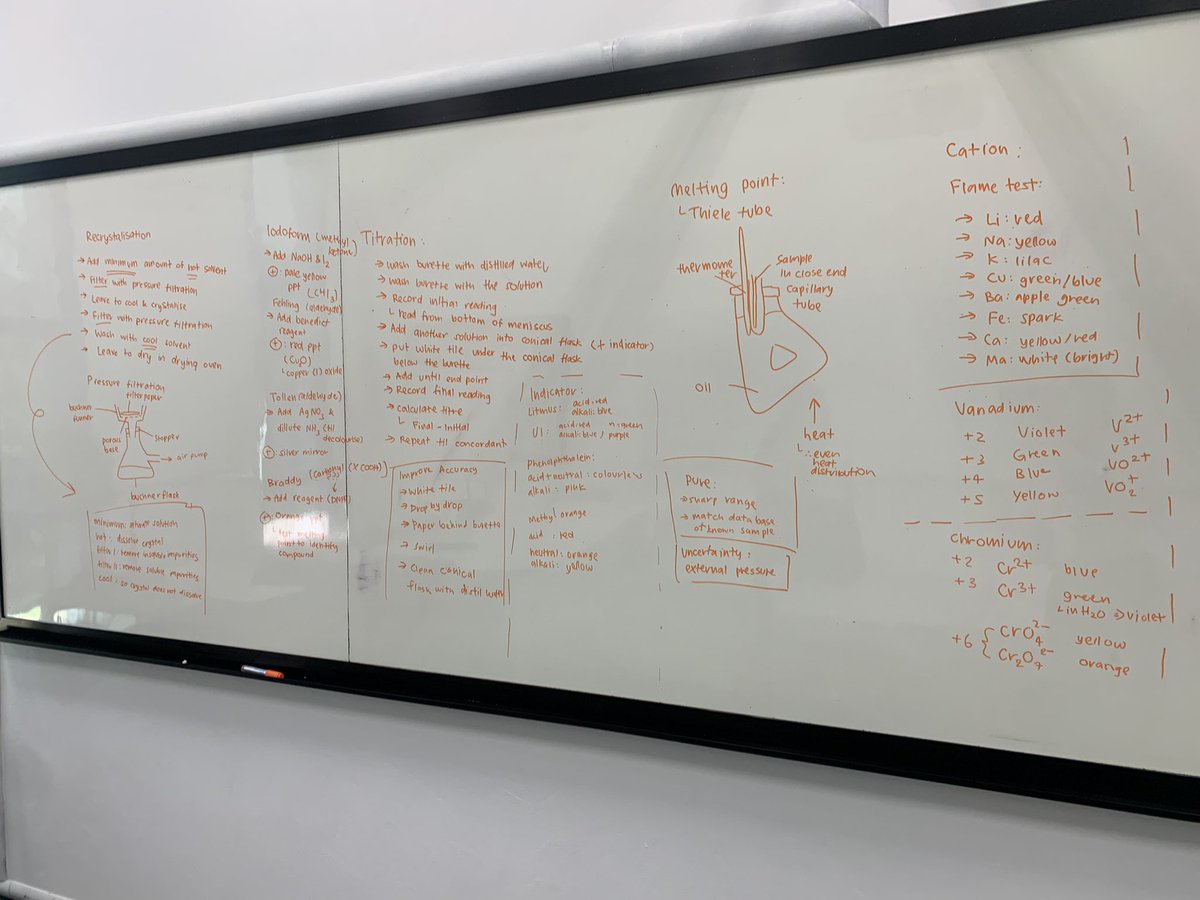 Recrystalisation
→ Add minimum amount of hot solvent
→ Filter with pressure filtration
→ Leave to cool & crystalise
→ Filter with pressure filtration
→ Wash with cool solvent
→ Leave to dry in drying oven
Pressure filtration
filter paper
buchner
funner
porous
base
stopper
→ air pump
buchner flask
minimum: solution
hot: dissolve crystal
filter I: remove insoluble impurities
filter II: remove soluble impurities
cool: so crystal does not dissolve
Iodoform (methyl
ketone)
→ Add NaOH & I2
⊕: pale yellow
ppt
(CHI3)
Fehling (aldehyde)
→ Add benedict
reagent
⊕: red ppt
(CuO)
└ copper (I) oxide
Tollen (aldehyde)
→ Add AgNO3 &
dilute NH3 (til
decolourise)
⊕: silver mirror
Braddy (carbonyl (X COOH))
→ Add reagent (DNPH)
⊕: Orange ppt
└ test melting
point to identify
compound
Titration:
→ wash burette with distilled water
→ wash burette with the solution
→ Record initial reading
└ read from bottom of meniscus
→ Add another solution into conical flask (+ indicator)
→ put white tile under the conical flask
below the burette
→ Add until end point
→ Record final reading
→ calculate titre
└ Final - Initial
→ Repeat til concordant
Improve Accuracy
→ White tile
→ Drop by drop
→ Paper behind burette
→ Swirl
→ Clean conical
flask with distil water
Indicator:
Litmus: acid: red
alkali: blue
UI: acid: red n: green
alkali: blue / purple
Phenolphthalein:
acid + neutral: colourless
alkali: pink
methyl orange
acid: red
neutral: orange
alkali: yellow
Melting point:
└ Thiele tube
thermome
ter
sample
in close end
capillary
tube
Oil
heat
└ ∴ even
heat
distribution
Pure:
→ sharp range
→ match data base
of known sample
uncertainty:
external pressure
Cation:
Flame test:
→ Li: red
→ Na: yellow
→ K: lilac
→ Cu: green/blue
→ Ba: apple green
→ Fe: spark
→ Ca: yellow/red
→ Ma: white (bright)
Vanadium:
+2 Violet V2+
+3 Green V3+
+4 Blue VO2+
+5 Yellow VO2+
Chromium:
+2 Cr2+ blue
+3 Cr3+ green
└ in H2O ⇒ violet
+6 { CrO4 2- yellow
Cr2O7 2- orange